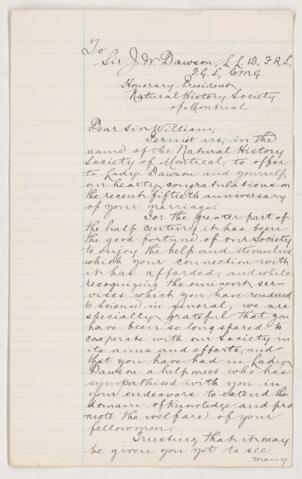 To
Sir J. W. Dawson, L.L.D. F.R.S.
F.G.S. C.M.G.
Honorary President
Natural History Society
of Montreal
Dear Sir William,
Permit us, in the
name of the Natural History
Society of Montreal, to offer
to Lady Dawson and yourself,
our hearty congratulations on
the recent fiftieth anniversary
of your marriage.
For the greater part of
the half century it has been
the good fortune of our Society
to enjoy the help and stimulus
which your connection with
it has afforded, and while
recognizing the eminent ser-
vices which you have rendered
to Science in general, we are
specially grateful that you
have been so long spared to
cooperate with our Society in
its aims and efforts, and
that you have had in Lady
Dawson a helpmeet who has
sympathised with you in
your endeavors to extend the
domain of knowledge and pro
mote the welfare of your
fellowmen.
Trusting that it may
be given you yet to see
many